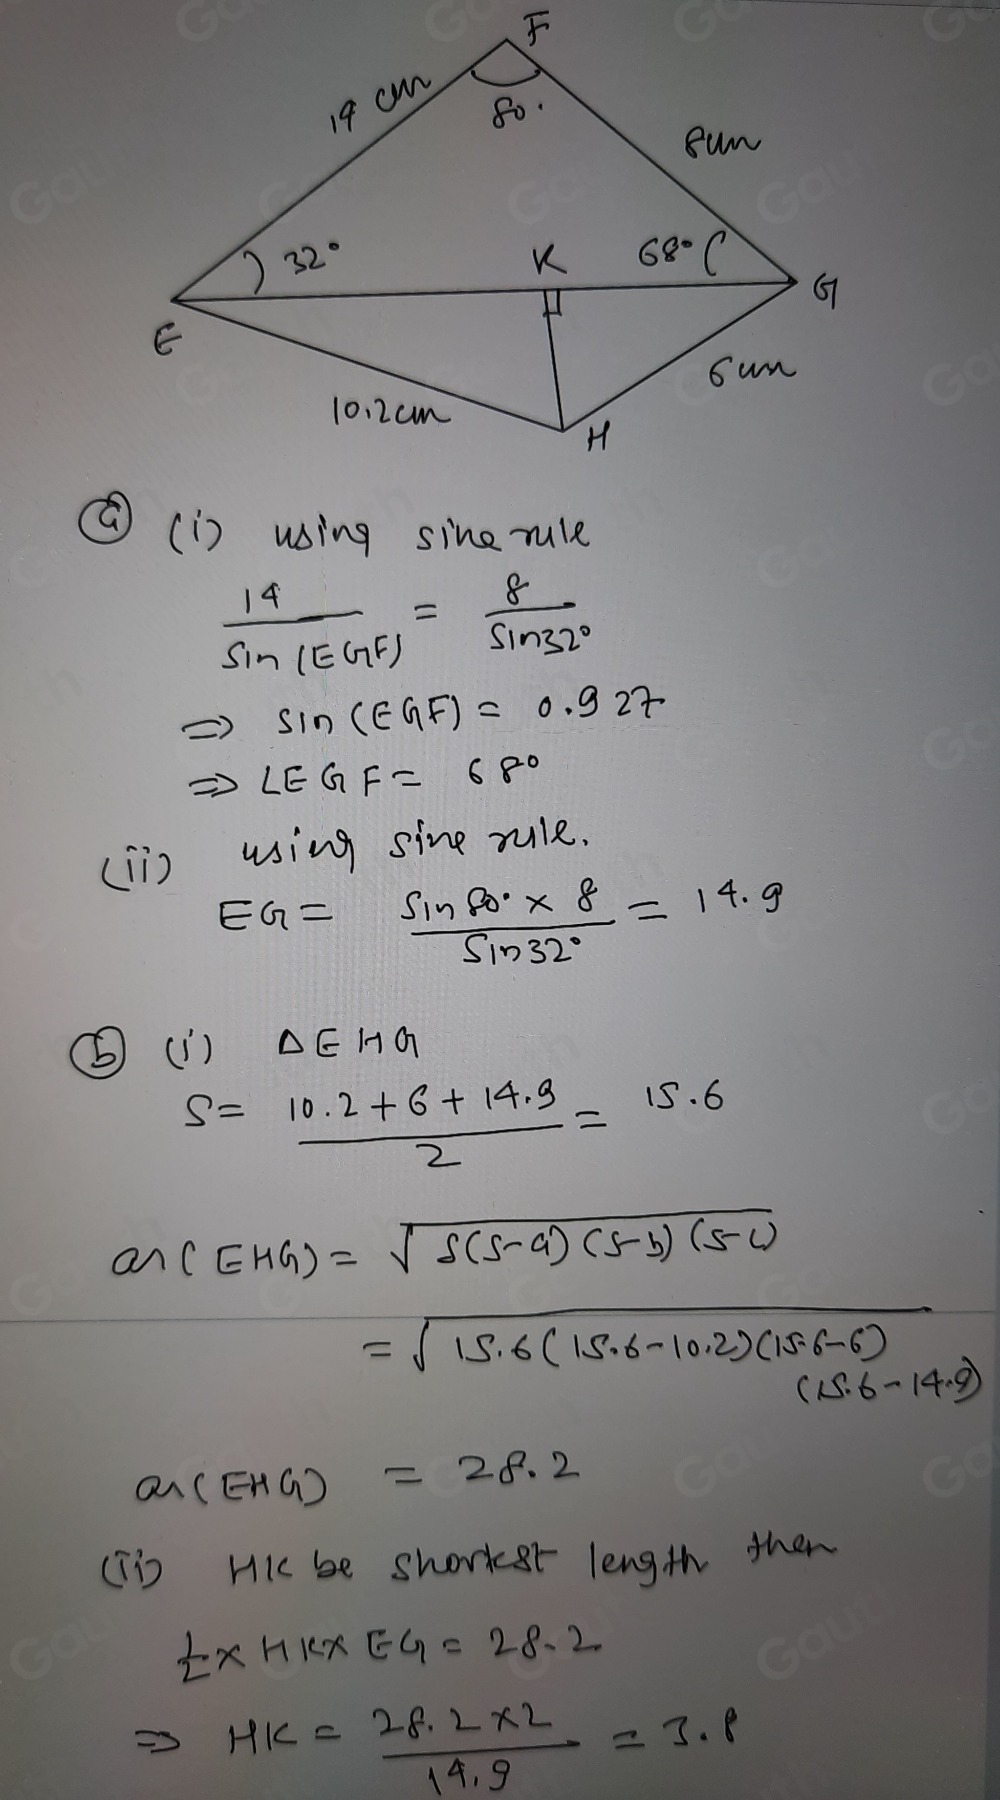 F
14 cm
80°
8cm
32°
K
68°
G
E
6cm
10.2cm
H
(a) (i) using sine rule
14 / Sin(EGF) = 8 / Sin32°
⇒ sin(EGF) = 0.927
⇒ ∠EGF = 68°
(ii) using sine rule.
EG = Sin80° × 8 / Sin32° = 14.9
(b) (i) ΔEHG
S = 10.2+6+14.9 / 2 = 15.6
ar(EHG) = √S(S-a)(S-b)(S-c)
= √15.6(15.6-10.2)(15.6-6)
(15.6-14.9)
ar(EHG) = 28.2
(ii) HK be shortest length then
½×HK×EG = 28.2
⇒ HK = 28.2×2 / 14.9 = 3.8